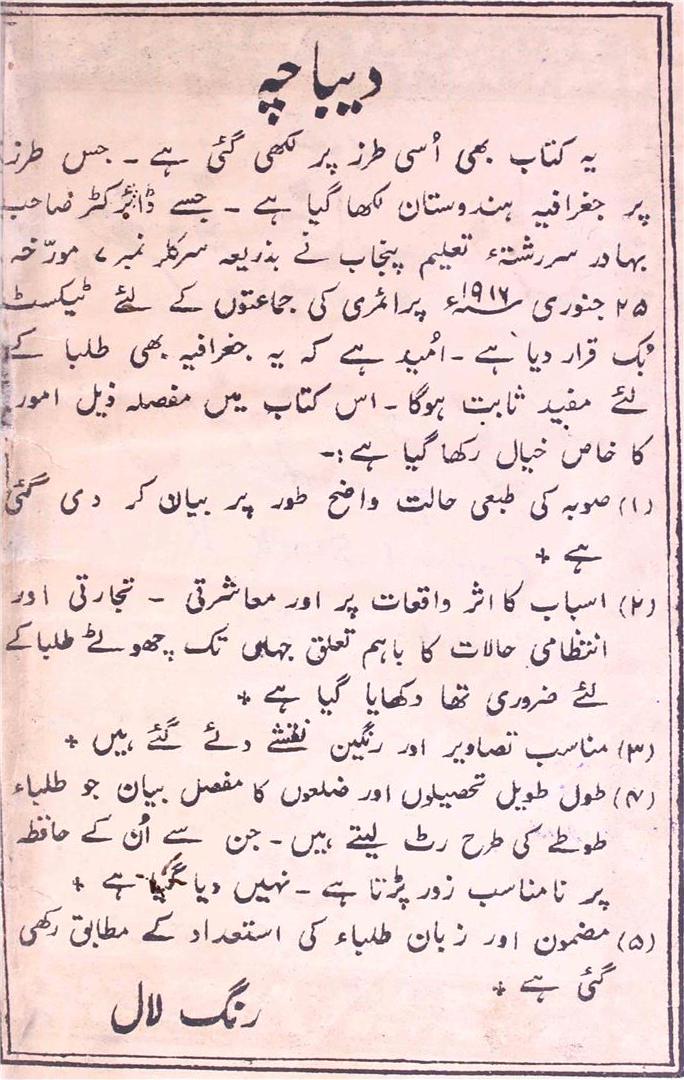 دیباچہ
یہ کتاب بھی اُسی طرز پر لکھی گئی ہے ۔ جس طرز
پر جغرافیہ ہندوستان لکھا گیا ہے ۔ جسے ڈائرکٹر صاحب
بہادر سررشتۂ تعلیم پنجاب نے بذریعہ سرکلر نمبر ۷ مورّخہ
۲۵ جنوری ۱۹۱۶ء پرائمری کی جماعتوں کے لئے ٹیکسٹ
بک قرار دیا ہے ۔ اُمید ہے کہ یہ جغرافیہ بھی طلبا کے
لئے مفید ثابت ہوگا ۔ اس کتاب میں مفصلہ ذیل امور
کا خاص خیال رکھا گیا ہے :۔
(۱) صوبہ کی طبعی حالت واضح طور پر بیان کر دی گئی
ہے +
(۲) اسباب کا اثر واقعات پر اور معاشرتی ۔ تجارتی اور
انتظامی حالات کا باہم تعلق جہاں تک چھوٹے طلبا کے
لئے ضروری تھا دکھایا گیا ہے +
(۳) مناسب تصاویر اور رنگین نقشے دئے گئے ہیں +
(۴) طول طویل تحصیلوں اور ضلعوں کا مفصل بیان جو طلباء
طوطے کی طرح رٹ لیتے ہیں ۔ جن سے اُن کے حافظہ
پر نامناسب زور پڑتا ہے ۔ نہیں دیا گیا ہے +
(۵) مضمون اور زبان طلباء کی استعداد کے مطابق رکھی
گئی ہے +
رنگ لال